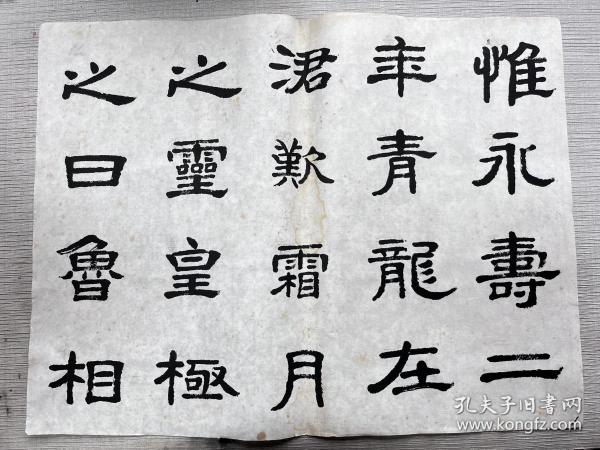 惟永壽二
年青龍在
涒歎霜月
之靈皇極
之日魯相
孔夫子旧書网
www.kongfz.com